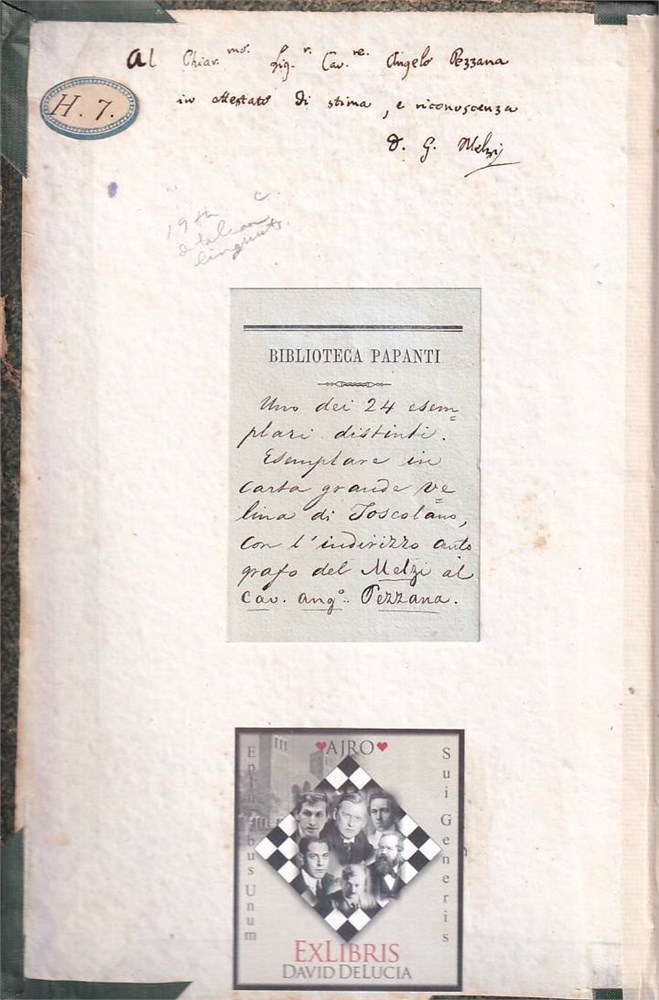 Al Chiar.mo. Sig.r. Cav.re. Angelo Pezzana
H. 7.
in attestato di stima, e riconoscenza
D. G. Melzi
19th C.
Italian
linguists.
BIBLIOTECA PAPANTI
Uno dei 24 esem=
plari distinti.
Esemplare in
carta grande ve=
lina di Toscolano,
con l'indirizzo auto
grafo del Melzi al
Cav. Ang.º Pezzana.
♥AJRO♥
Sui Generis
Unum
EXLIBRIS
DAVID DELUCIA